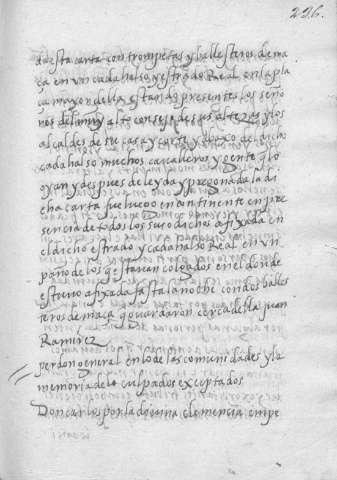 226.
do esta carta con trompetas y ballesteros de ma
ça en vn cadahalso y estrado Real en la pla
ça mayor della estando presentes los seño
res del muy alto consejo de sus altezas y los
alcaldes de su casa y corte y baxo del dicho
cadahalso muchos caualleros y gente q lo
oyan y despues de leyda y pregonada la di
cha carta fue luego en continente en pre
sencia de todos los susodichos afixada en
el dicho estrado y cadahalso Real en vn
paño de los q estauan colgados en el donde
estuuo afixada fasta la noche con dos balles
teros de maça q guardaron cerca della juan
Ramirez
perdon general en lo de las comunidades y la
memoria de los culpados exceptados
Don carlos por la diuina clemencia empe